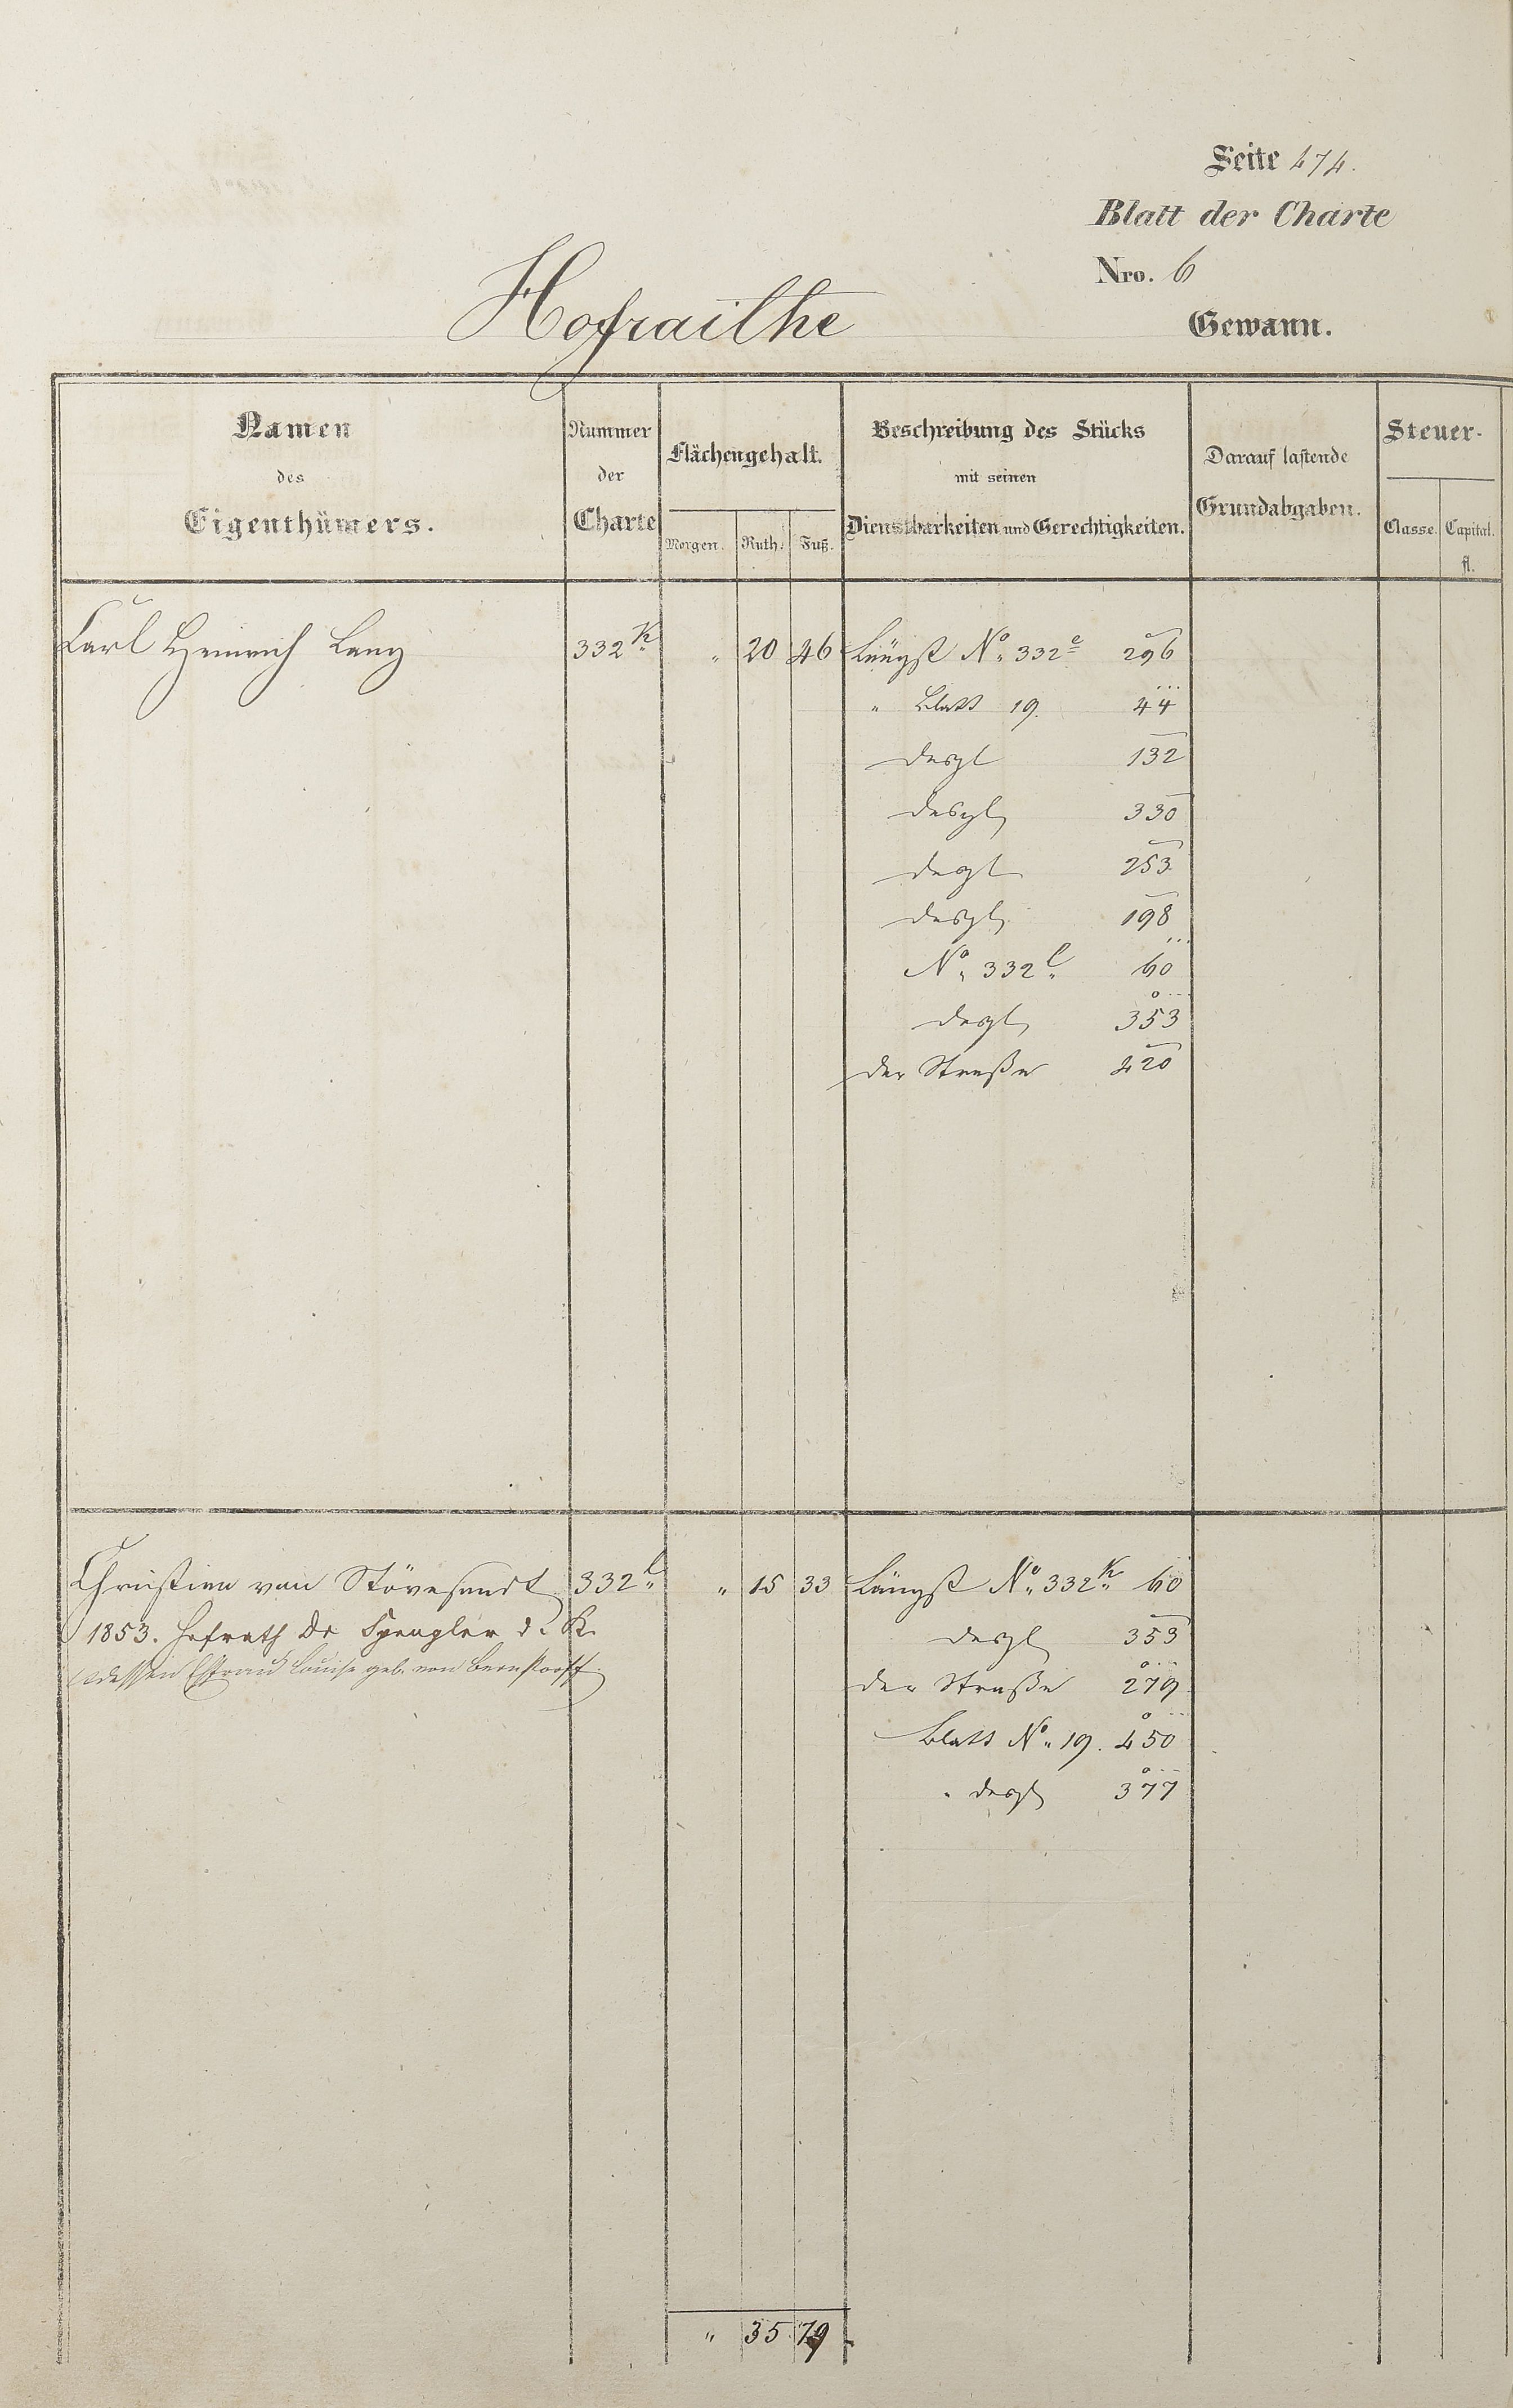 Seite 474.
Blatt der Charte
Nro. 6
Hofraithe Gewann.
Namen des Eigenthümers.
Nummer der Charte
Flächengehalt.
Morgen. Ruth. Fuß.
Beschreibung des Stücks mit seinen Dienstbarkeiten und Gerechtigkeiten.
Darauf lastende Grundabgaben.
Steuer-
Classe. Capital. fl.
Carl Heinrich Lang 332 K " 20 46 Längst No. 332 e 296
" Blatt 19. 44
desgl 132
desgl 330
desgl 253
desgl 198
No. 332 l 60
desgl 353
der Straße 420
Christian von Stövesandt 332 l " 15 33 Längst No. 332 K 60
1853. Hofrath Dr Spengler d. K. desgl 353
dessen Efrau Louise geb. von Bernstorff der Straße 279
Blatt No. 19. 450
" desgl 377
" 35 79